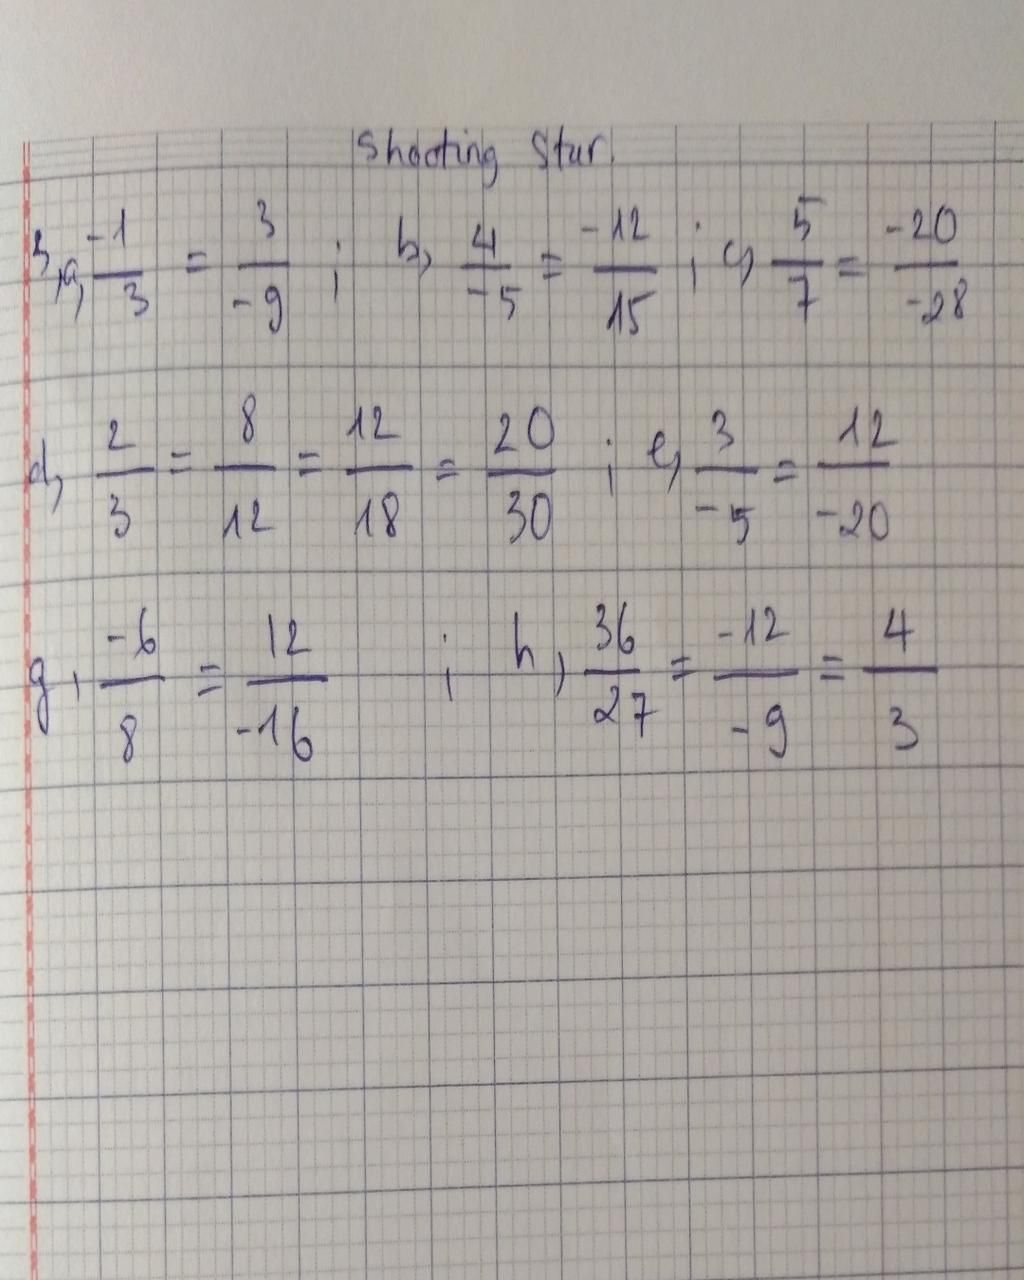 Shooting Star.
3, a, -1/3 = 3/-9 ; b, 4/-5 = -12/15 ; c, 5/7 = -20/-28
d, 2/3 = 8/12 = 12/18 = 20/30 ; e, 3/-5 = 12/-20
g, -6/8 = 12/-16 ; h, 36/27 = -12/-9 = 4/3